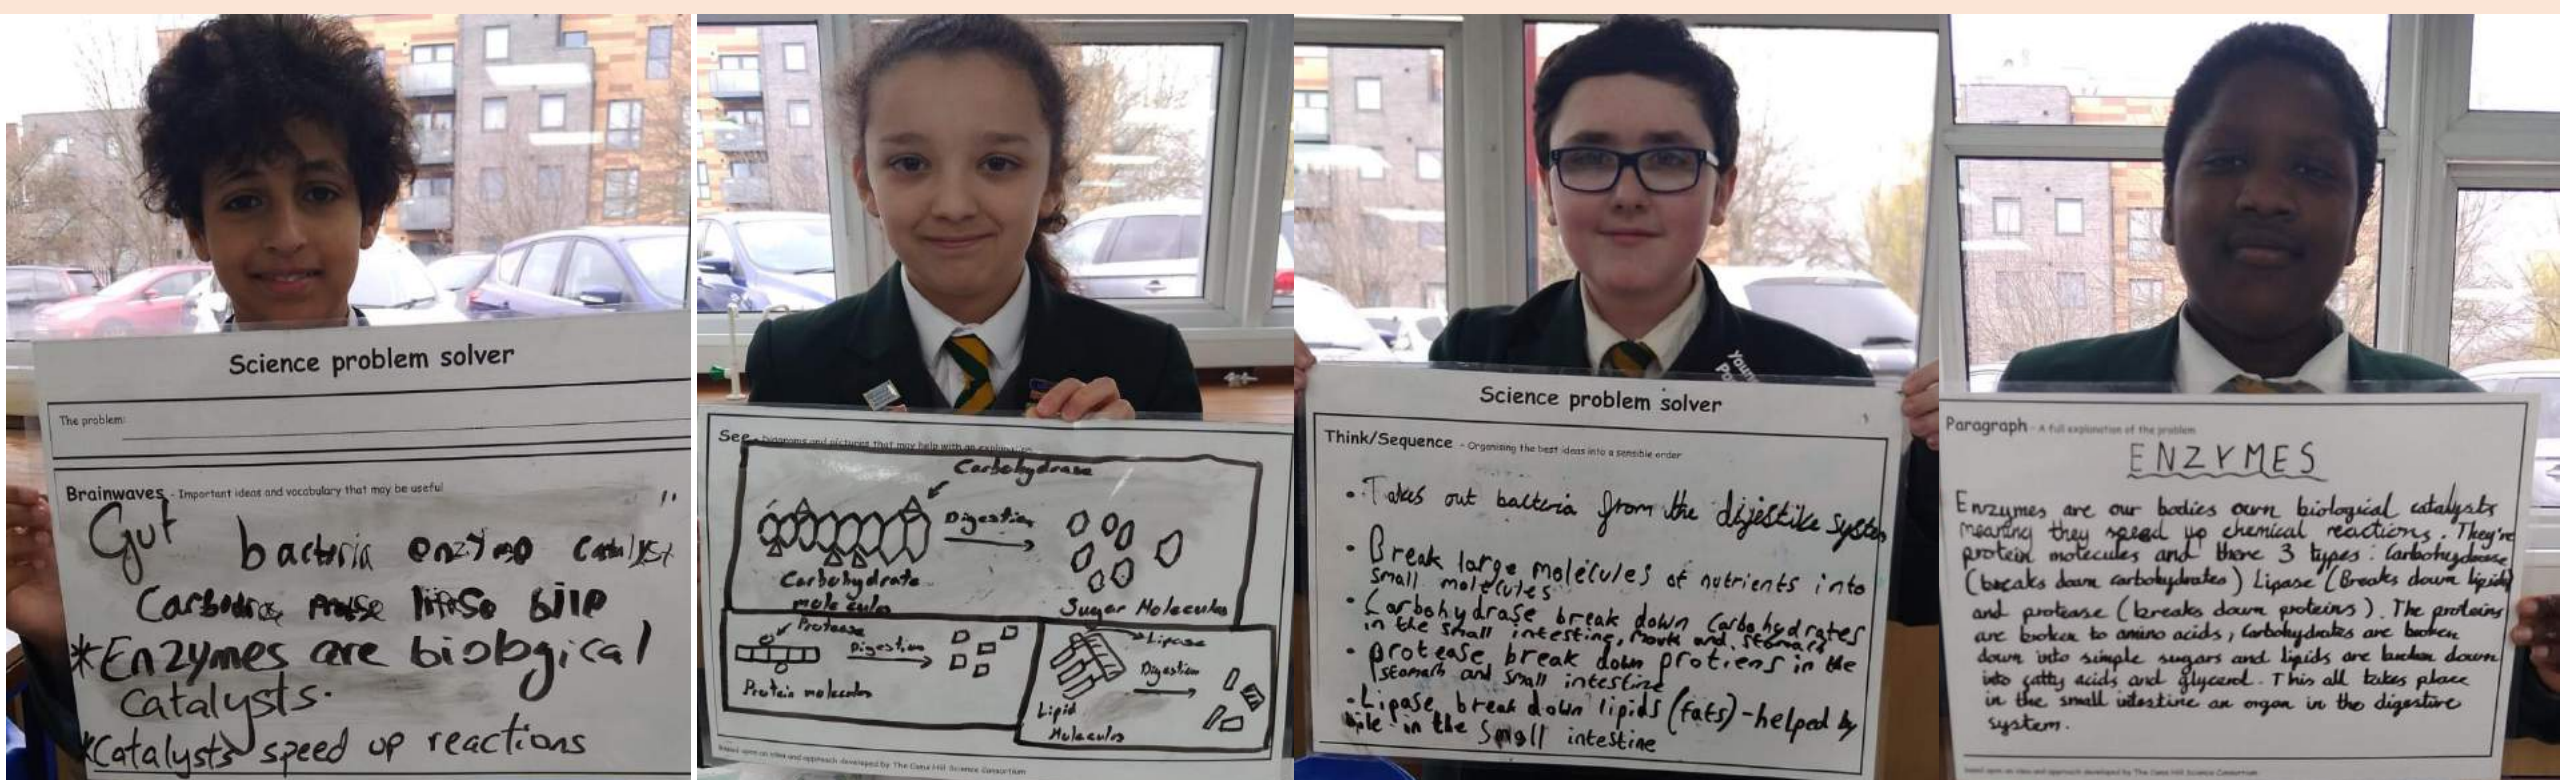 Science problem solver
The problem:
Brainwaves - Important ideas and vocabulary that may be useful
Gut bacteria enzyme Catalyst
bile
*Enzymes are biological
catalysts.
*Catalysts speed up reactions
See - Diagrams and pictures that may help with an explanation
Carbohydrase
Digestion
Carbohydrate
molecules
Sugar Molecules
Protease
Digestion
Protein molecules
Lipase
Digestion
Lipid
Molecules
Based upon an idea and approach developed by The Cams Hill Science Consortium
Youn
Po
Science problem solver
Think/Sequence - Organising the best ideas into a sensible order
• Takes out bacteria from the dijestike system
• Break large molecules of nutrients into
small molecules
• Carbohydrase break down Carbohydrates
in the small intestine, mouth and stomach
• protease break down protiens in the
stomach and small intestine
• Lipase break down lipids (fats) - helped by
bile in the Small intestine
Paragraph - A full explanation of the problem
ENZYMES
Enzymes are our bodies own biological catalysts
meaning they speed up chemical reactions. They're
protein molecules and there 3 types: Carbohydrase
(breaks down carbohydrates) Lipase (Breaks down lipids)
and protease (breaks down proteins). The proteins
are broken to amino acids, Carbohydrates are broken
down into simple sugars and lipids are broken down
into fatty acids and glycerol. This all takes place
in the small intestine an organ in the digestive
system.
Based upon an idea and approach developed by The Cams Hill Science Consortium